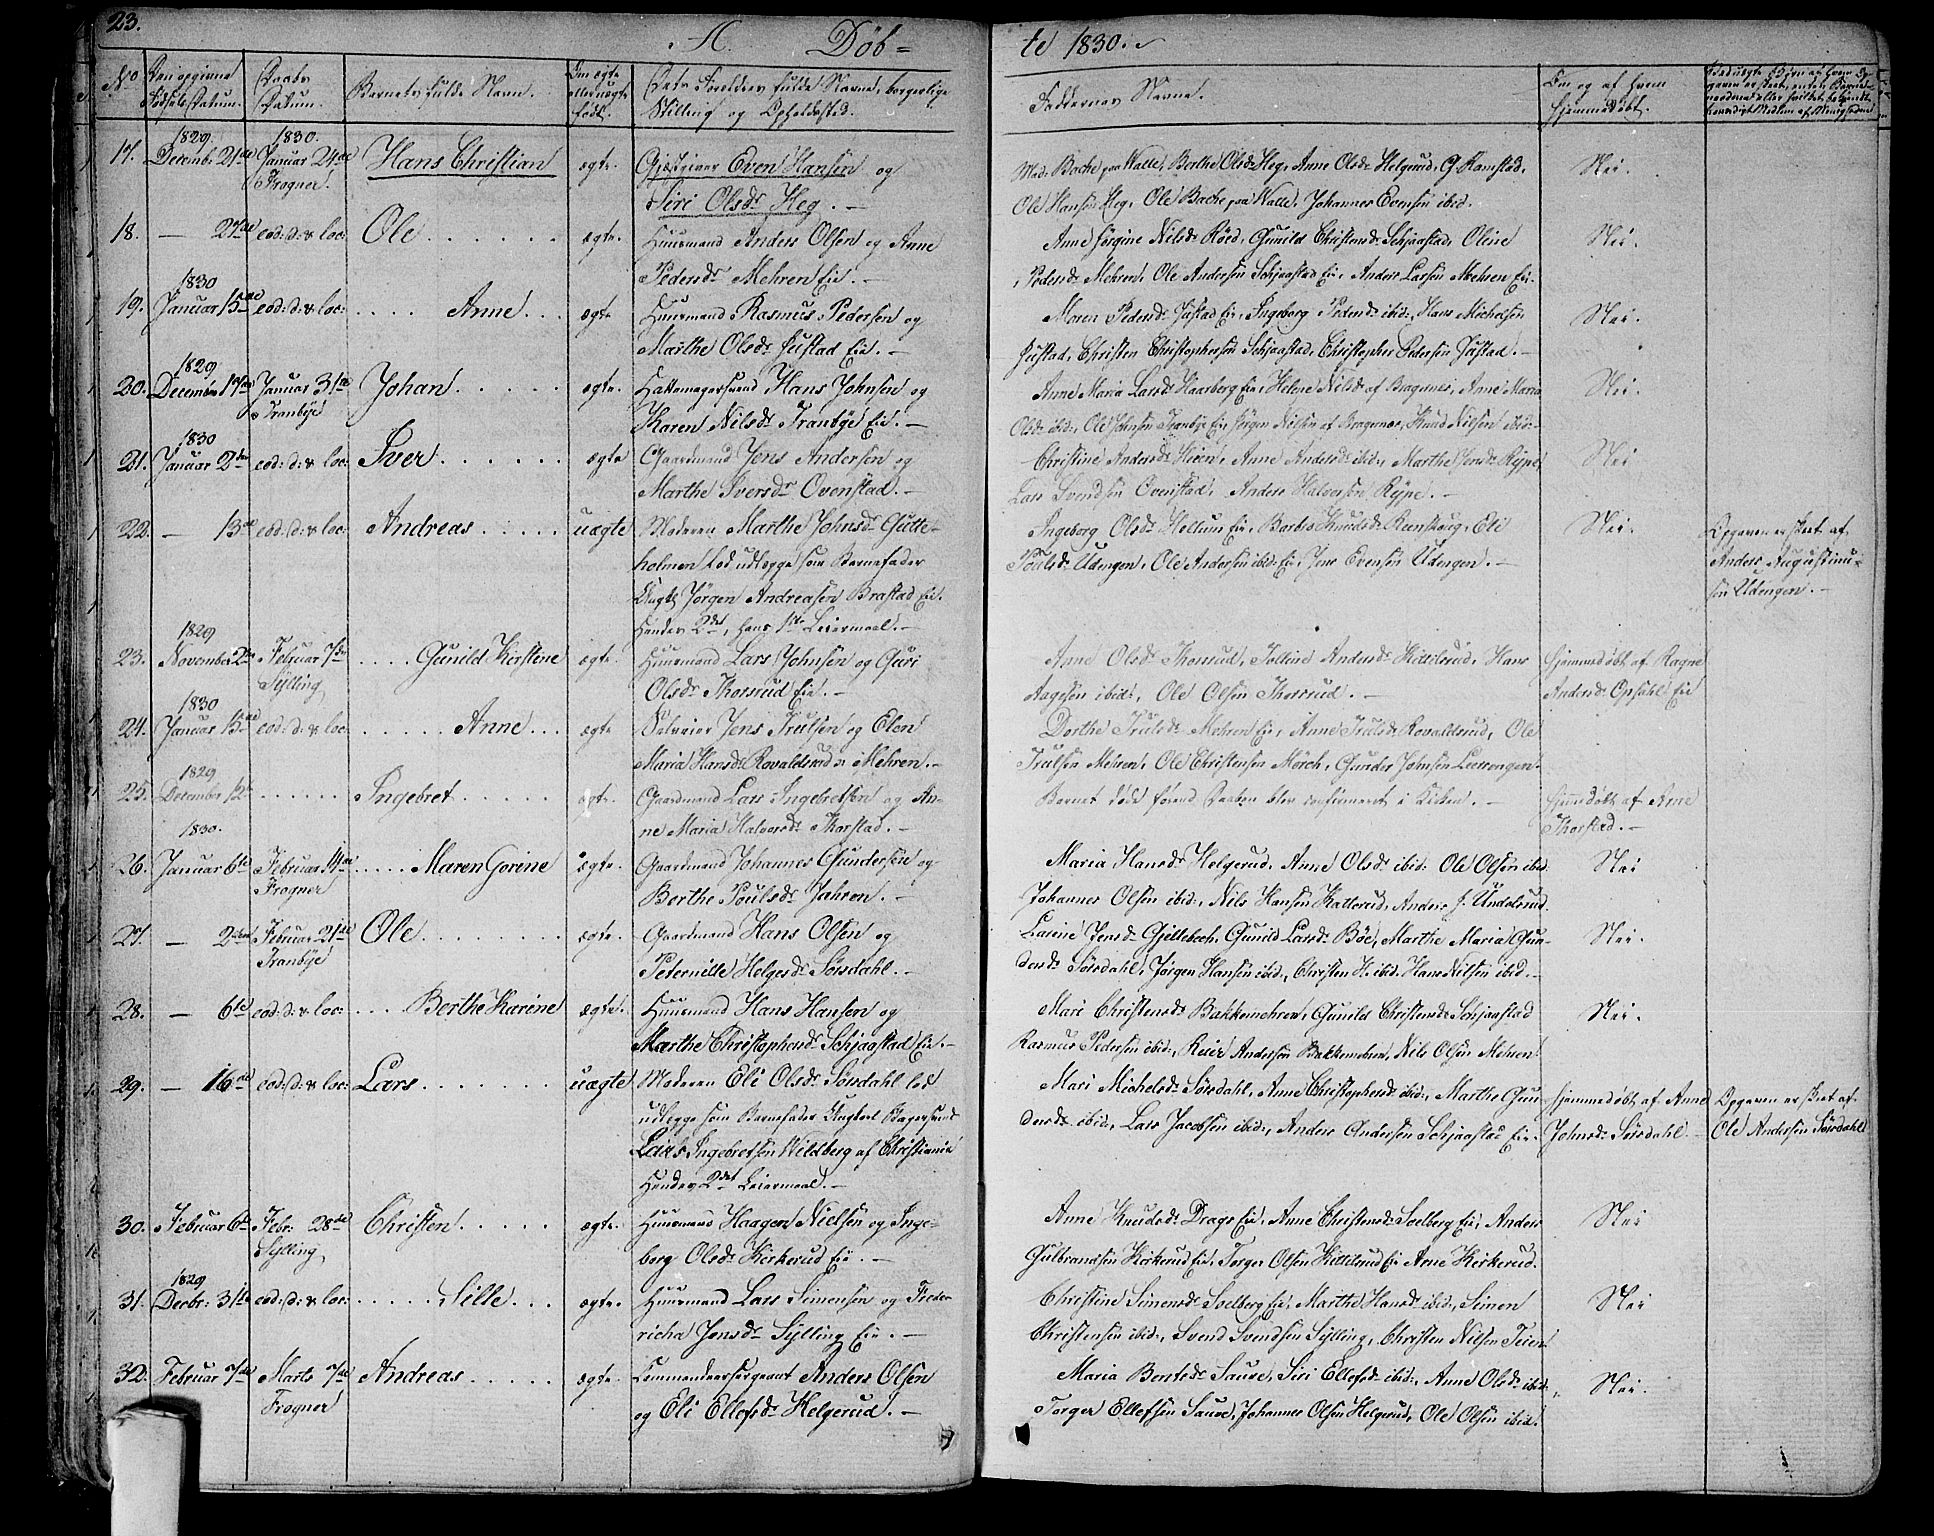 23.
A. Døb=
te 1830.
No
Den opgivne Fødsels-Datum.
Daabs Datum.
Barnets fulde Navn.
Om ægte eller uægte født.
Dets Forældres fulde Navne, borgerlige Stilling og Opholdssted.
Faddernes Navne.
Om og af hvem hjemmedøbt.
17. 1829 Decemb: 21de 1830. Januar 24de Frogner. Hans Christian ægte. Gjæstgiver Even Hansen og
Siri Olsdr Heg. –
Mad: Bache paa Walle, Berthe Olsdr Heg, Anne Olsdr Helgerud, G. Ramstad,
Ole Hansen Heg, Ole Bache paa Walle, Johannes Evensen ibid.
Nei.
18. – 27de eod: d: & loc: Ole ægte. Huusmand Anders Olsen og Anne
Pedersdr Mehren Eie. –
Anne Jørgine Nilsdr Röed, Gunild Christensdr Schjaastad, Oline
Pedersdr Mehren, Ole Andersen Schjaastad Eie, Anders Larsen Mehren Eie.
Nei.
19. 1830 Januar 15de eod: d: & loc: Anne ægte Huusmand Rasmus Pedersen og
Marthe Olsdr Justad Eie. –
Maren Pedersdr Justad Eie, Ingeborg Pedersdr ibid:, Hans Michelsen
Justad, Christen Christophersen Schjaastad, Christopher Pedersen Justad. –
Nei.
20. 1829 December 17de Januar 31te Tranbye Johan ægte. Hattemagersvend Hans Johnsen og
Karen Nilsdr Tranbye Eie. –
Anne Maria Larsdr Haarberg Eie, Helene Nilsdr af Bragenæs, Anne Maria
Olsdr ibid:, Ole Johnsen Tranbye Eie, Jørgen Nilsen af Bragenæs, Knud Nilsen ibid: –
Nei.
21. 1830 Januar 2den eod: d: & loc: Iver ægte Gaardmand Jens Andersen og
Marthe Iversdr Ovenstad. –
Christine Andersdr Høien, Anne Andersdr ibid:, Marthe Jensdr Rÿpe
Lars Svendsen Ovenstad, Anders Halvorsen Rÿpe. –
Nei
22. – 13de eod: d: & loc: Andreas uægte Moderen Marthe Johnsdr Gutte-
holmen lod udlægge som Barnefader
Ungk: Jörgen Andreasen Brastad Eie.
Hendes 2det, hans 1ste Leiermaal. –
Ingeborg Olsdr Hellum Eie, Barbro Knudsdr Reenskoug, Eli
Poulsdr Udengen, Ole Andersen ibid: Eie, Jens Evensen Udengen. –
Nei.
Opgaven er skeet af
Anders Augustinu-
sen Udengen. –
23. 1829 November 2den Februar 7de Sylling Gunild Kirstine ægte. Huusmand Lars Johnsen og Guri
Olsdr Thorsrud Eie. –
Anne Olsdr Thorsrud, Tolline Andersdr Kittilsrud, Hans
Aagesen ibid:, Ole Olsen Thorsrud. –
Hjemmedøbt af Ragne
Andersdr Opsahl Eie
24. 1830 Januar 13de eod: d: & loc: Anne ægte Selveier Jens Trulsen og Elen
Maria Hansdr Rovaldsrud i Mehren. –
Dorthe Trulsdr Mehren Eie, Anne Trulsdr Rovaldsrud, Ole
Trulsen Mehren, Ole Christensen Mörch, Gunder Johnsen Leerengen.
25. 1829 December 12te Ingebret ægte. Gaardmand Lars Ingebretsen og An-
ne Maria Halvorsdr Thorstad. –
Barnet døde førend Daaben blev confirmeret i Kirken. –
Hjemmedøbt af Arne
Thorstad. –
26. 1830. Januar 6te Februar 14de Frogner Maren Gorine ægte. Gaardmand Johannes Gundersen og
Berthe Poulsdr Jahren. –
Maria Hansdr Helgerud, Anne Olsdr ibid: Ole Olsen ibid
Johannes Olsen ibid:, Nils Hansen Katterud, Anders J. Undelsrud.
Nei
27. – 2den Februar 21de Tranbye Ole ægte. Gaardmand Hans Olsen og
Peternille Helgesdr Sørsdahl. –
Laeine Jensdr Gjellebech, Gunild Larsdr Böe, Marthe Maria Gun-
dersdr Sørsdahl, Jørgen Hansen ibid:, Christen H. ibid: Hans Nilsen ibid. –
Nei.
28. – 6te eod: d: & loc: Berthe Karine ægte. Huusmand Hans Hansen og
Marthe Christophersdr Schjaastad Eie. –
Mari Christensdr Bakkemehren, Gunild Christensdr Schjaastad
Rasmus Pedersen ibid:, Reier Andersen Bakkemehren, Nils Olsen Mehren
Nei.
29. – 16de eod: d: & loc: Lars uægte Moderen Eli Olsdr Sørsdahl lod
udlægge som Barnefader Ungkarl Bagersvend
Lars Ingebretsen Wildberg af Christiania
Hendes 2det Leiermaal. –
Mari Michelsdr Sørsdahl, Anne Christophersdr ibid:, Marthe Gun-
dersdr ibid:, Lars Jacobsen ibid:, Anders Andersen Schjaastad Eie.
Hjemmedøbt af Anne
Johnsdr Sørsdahl. –
Opgaven er skeet af
Ole Andersen Sörsdahl
30. Februar 6te Febr: 28de Sylling Christen ægte. Huusmand Haagen Nielsen og Inge-
borg Olsdr Kirkerud Eie. –
Anne Knudsdr Drags Eie, Anne Christensdr Soelberg Eie, Anders
Gulbrandsen Kirkerud Eie, Torger Olsen Kittilsrud Eie Arne Kirkerud.
Nei
31. 1829 Decbr: 31te eod: d: & loc: Sille ægte. Huusmand Lars Simensen og Frede-
richa Jensdr Sylling Eie. –
Christine Simensdr Soelberg Eie, Marthe Hansdr ibid:, Simen
Christensen ibid:, Svend Svendsen Sylling, Christen Nilsen Teien
Nei
32. Februar 7de Marts 7de Frogner Andreas ægte. Commandeersergeant Anders Olsen
og Eli Ellefsdr Helgerud. –
Maria Bentsdr Saue, Siri Ellefsdr ibid:, Anne Olsdr ibid:,
Torger Ellefsen Saue, Johannes Olsen Helgerud, Ole Olsen ibid.
Nei.